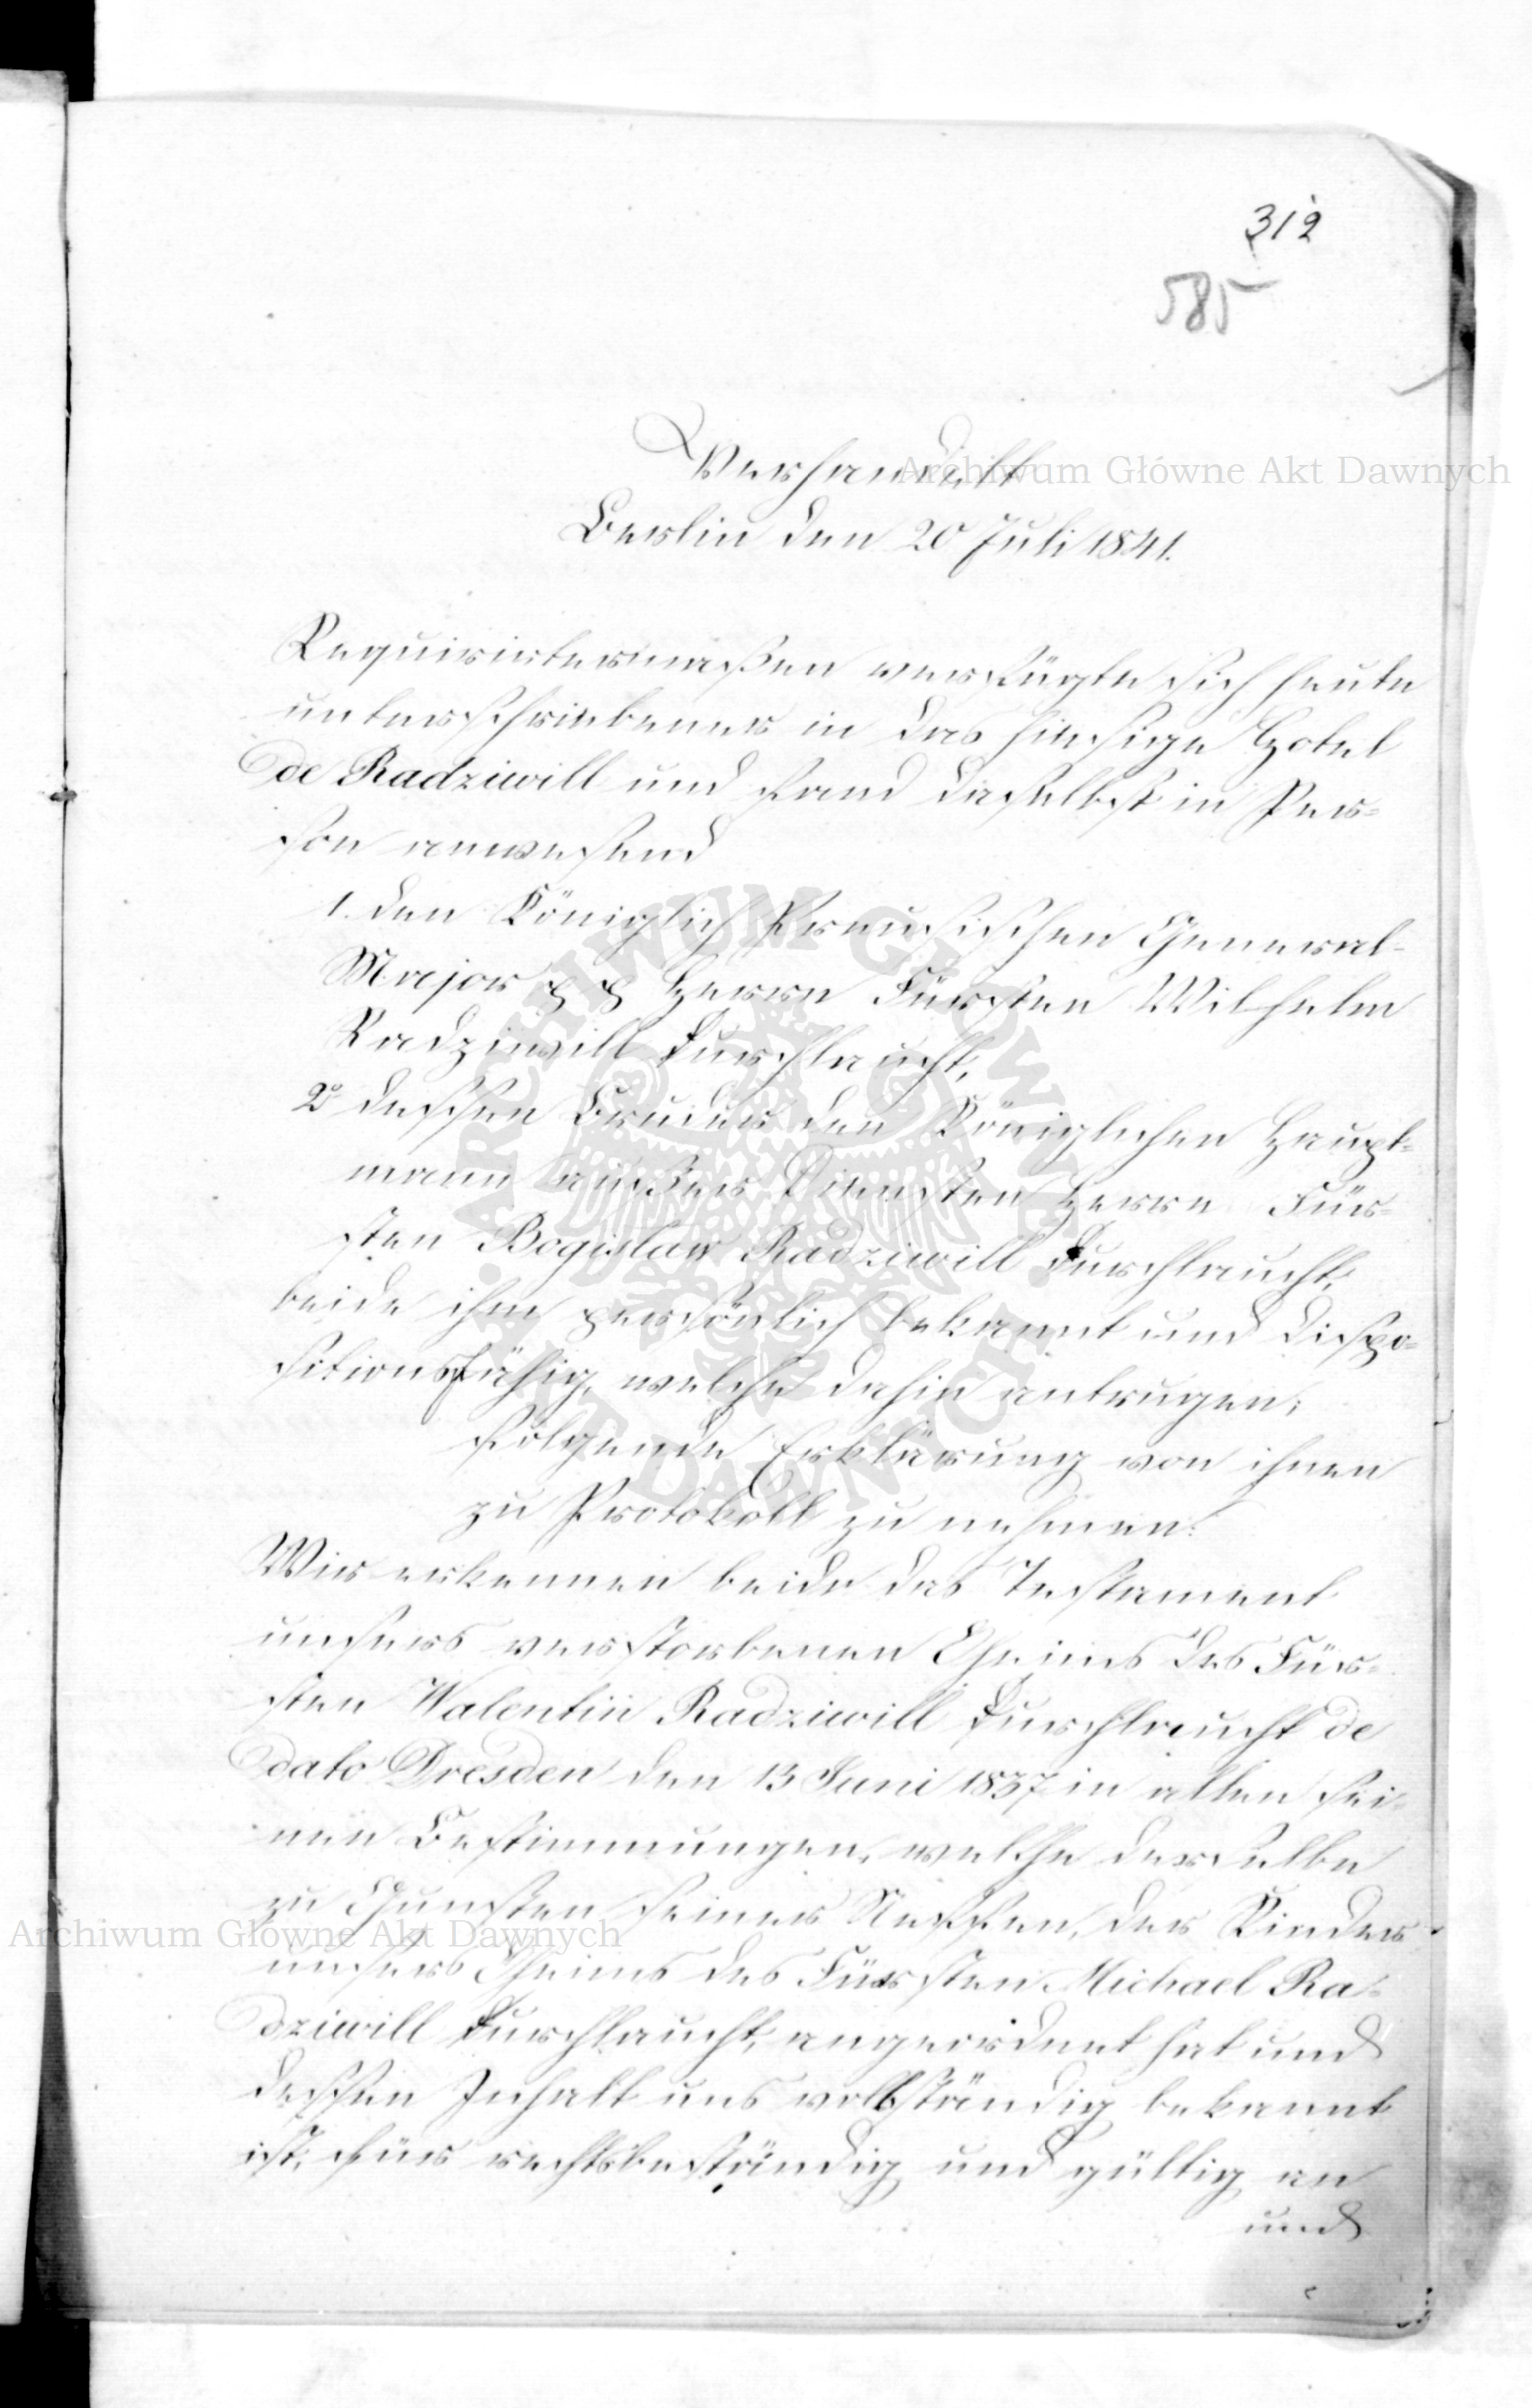 312
585
Verhandelt
Berlin den 20 Juli 1841.
Requirirtermaßen verfügte sich heute
unterschriebener in das hiesige Hotel
de Radziwill und fand daselbst in Per-
son anwesend
1. den Königlich Preusischen General-
Major p p Herrn Fürsten Wilhelm
Radziwill Durchlaucht,
2o dessen Bruder den Königlichen Haupt-
mann außer Diensten Herrn Für-
sten Boguslaw Radziwill Durchlaucht,
beide ihm persönlich bekannt und dispo-
sitionsfähig, welche dahin antrugen,
folgende Erklärung von ihnen
zu Protokoll zu nehmen:
Wir erkennen beide das Testament
unsers verstorbenen Oheims des Für-
sten Valentin Radziwill Durchlaucht de
dato Dresden den 13 Juni 1837 in allen sei-
nen Bestimmungen, welche derselbe
zu Gunsten seiner Neffen, der Kinder
unsers Oheims des Fürsten Michael Ra-
dziwill Durchlaucht, angeordnet hat und
dessen Inhalt uns vollständig bekannt
ist, für rechtsbeständig und gültig an
und
Archiwum Główne Akt Dawnych
Archiwum Główne Akt Dawnych
ARCHIWUM GŁÓWNE AKT DAWNYCH